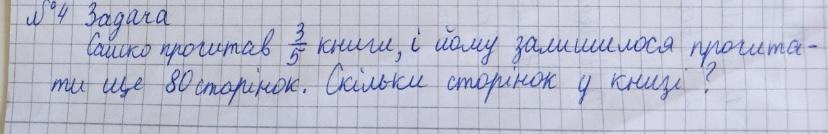 №4 Задача
Сашко прочитав 3/5 книги, і йому залишилося прочита-
ти ще 80 сторінок. Скільки сторінок у книзі?